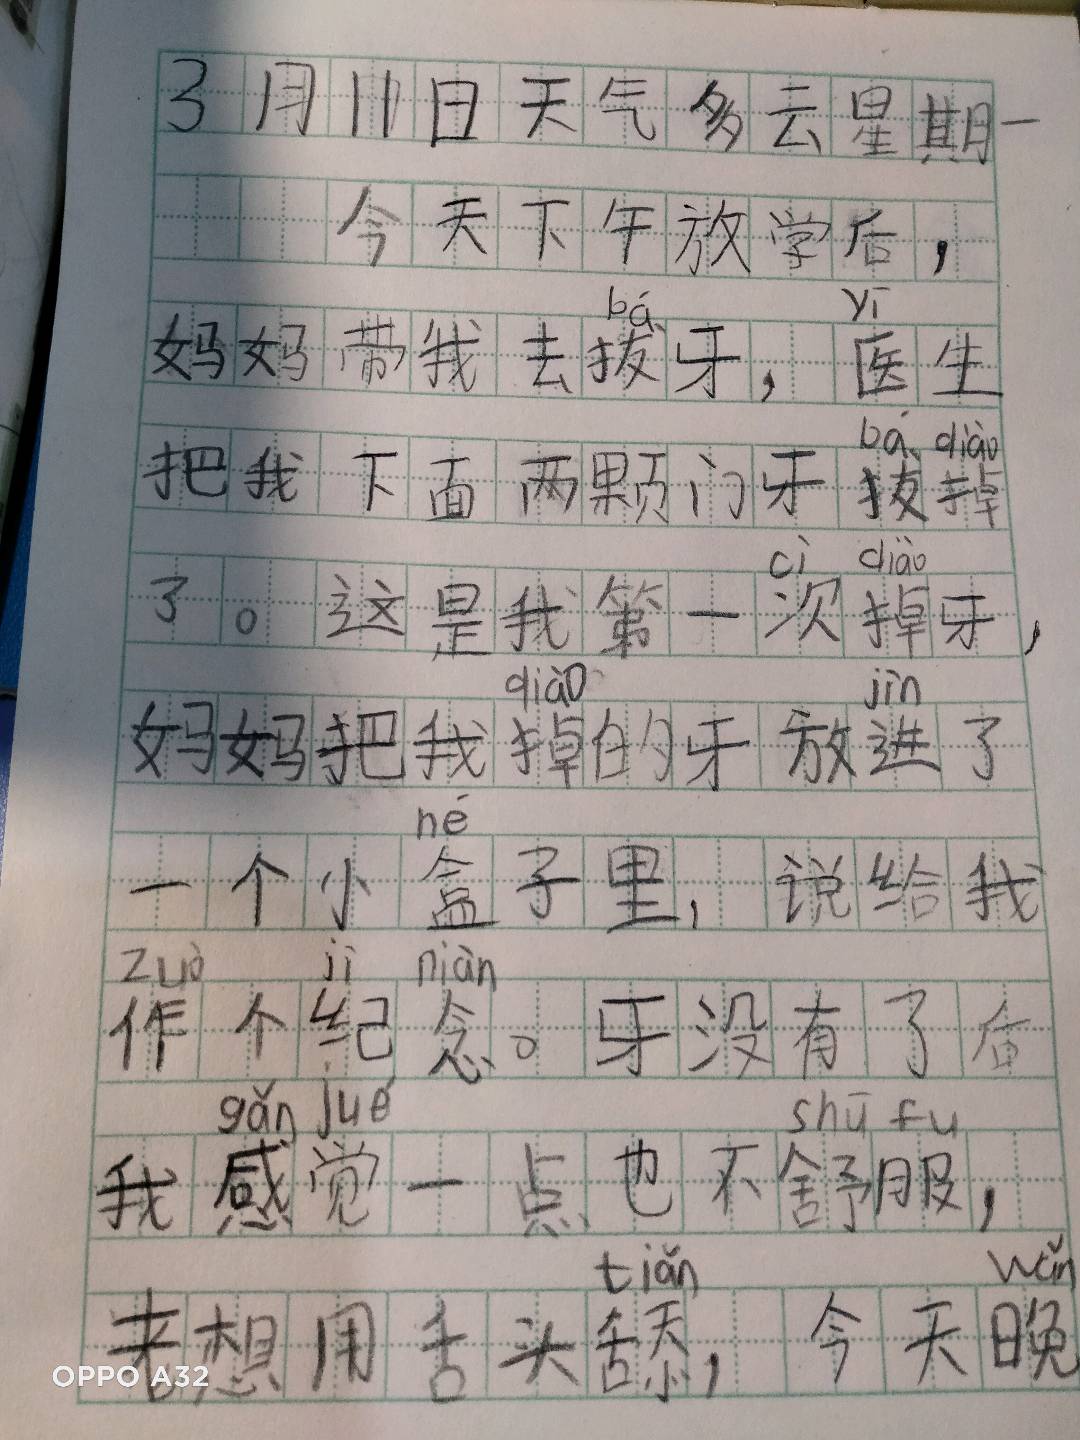 3月11日天气多云星期一
今天下午放学后，
bá yī
妈妈带我去拔牙，医生
bá diào
把我下面两颗门牙拔掉
cì diào
了。这是我第一次掉牙，
diào jìn
妈妈把我掉的牙放进了
hé
一个小盒子里，说给我
zuò jì niàn
作个纪念。牙没有了后
gǎn jué shū fu
我感觉一点也不舒服，
tiǎn wǎn
老想用舌头舔，今天晚
OPPO A32